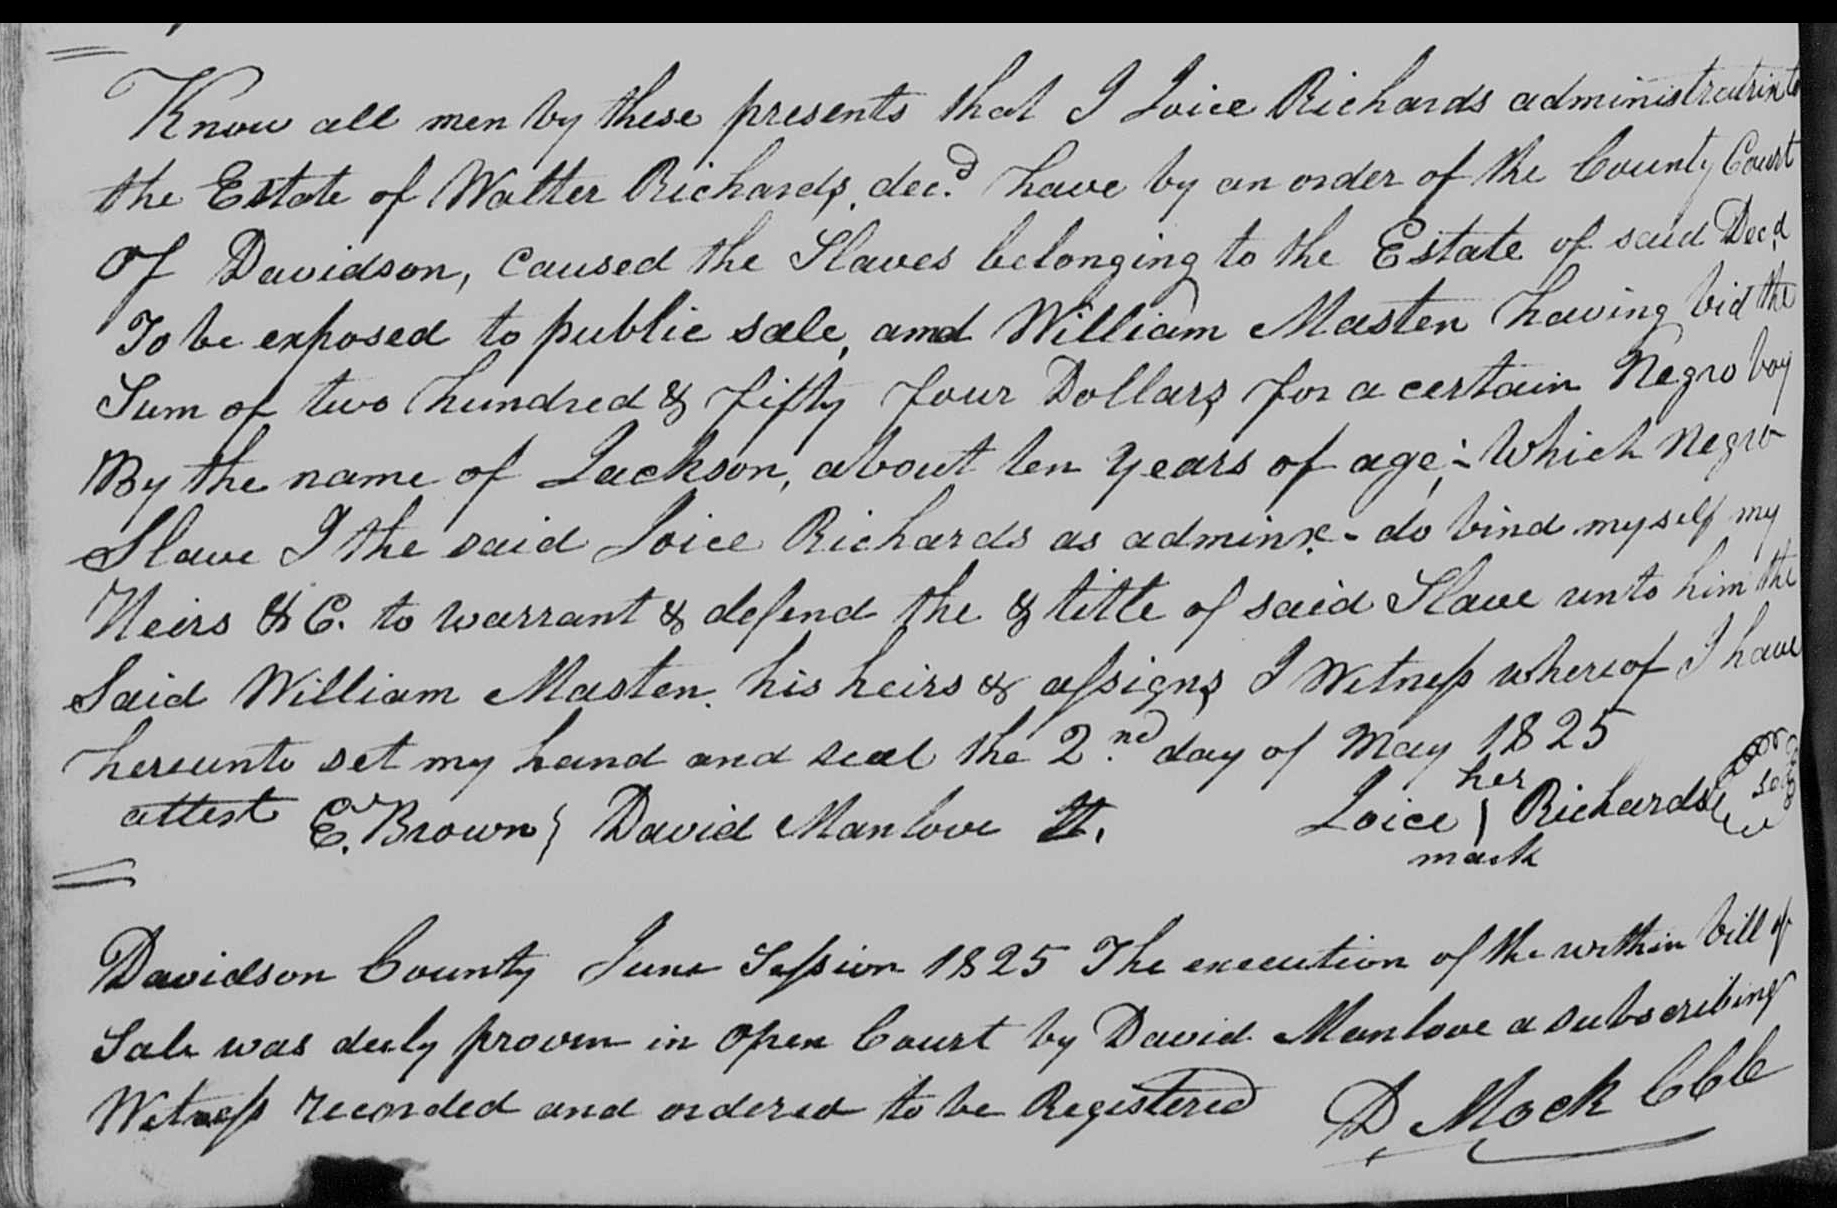 Know all men by these presents that I Joice Richards administratrix to
the Estate of Walter Richards, dec.d have by an order of the County Court
Of Davidson, Caused the Slaves belonging to the Estate of said Dec,d
To be exposed to public sale, and William Masten having bid the
Sum of two hundred & fifty four Dollars for a certain Negro boy
By the name of Jackson, about ten years of age;- Which Negro
Slave I the said Joice Richards as adminx - do bind myself my
Heirs & C. to warrant & defend the & title of said Slave unto him the
Said William Masten, his heirs & assigns I Witness whereof I have
hereunto set my hand and seal the 2.nd day of May 1825
her
attest E. Brown } David Manlove Jt. Joice ) Richards seal
mark
Davidson County June Session 1825 The execution of the within bill of
Sale was duly proven in Open Court by David Manlove a subscribing
Witness recorded and ordered to be Registered D. Mock CClk